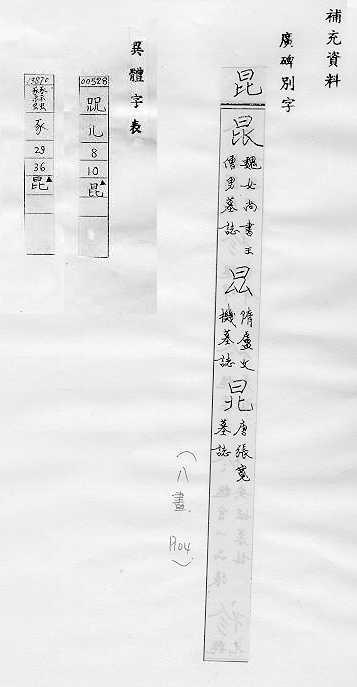 補充資料
廣碑別字
昆
魏女尚書王
僧男墓誌
隋盧文
機墓誌
唐張寬
墓誌
(八畫 P.104)
異體字表
00528
儿
8
10
昆▲
13870
豕
29
36
昆▲